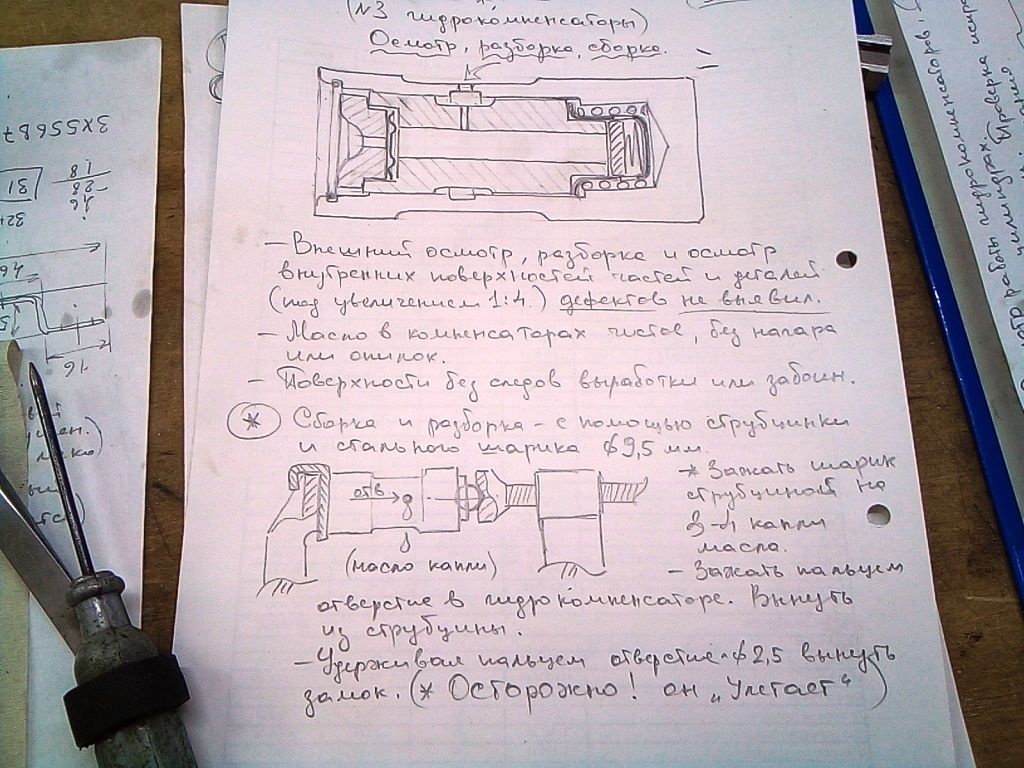 (N3 гидрокомпенсаторы)
Осмотр, разборка, сборка.
- Внешний осмотр, разборка и осмотр
внутренних поверхностей частей и деталей
(под увеличением 1:4.) дефектов не выявил.
- Масло в компенсаторах чистое, без нагара
или опилок.
- Поверхности без следов выработки или забоин.
* Сборка и разборка - с помощью струбцинки
и стального шарика ϕ9,5 мм.
отв
(масло капли)
* Зажать шарик
струбциной на
3-4 капли
масла.
- Зажать пальцем
отверстие в гидрокомпенсаторе. Вынуть
из струбцины.
- Удерживая пальцем отверстие ϕ2,5 вынуть
замок. (* Осторожно! он „Улетает“)
3X556B7
18
-28
46
31
32+
46
16
гидрокомпенсаторов,
работы гидрах.
цилиндрах. Проверка